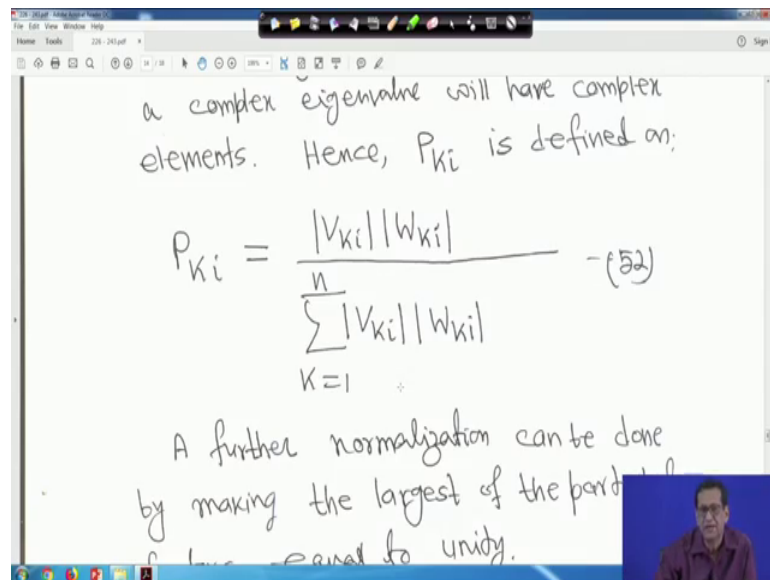 226 - 243.pdf - Adobe Acrobat Reader DC
File Edit View Window Help
Home Tools 226 - 243.pdf × Sign
a complex eigenvalue will have complex
elements. Hence, P_{Ki} is defined as:
P_{Ki} = |V_{Ki}| |W_{Ki}| / \sum_{K=1}^{n} |V_{Ki}| |W_{Ki}| -(52)
A further normalization can be done
by making the largest of the
equal to unity.